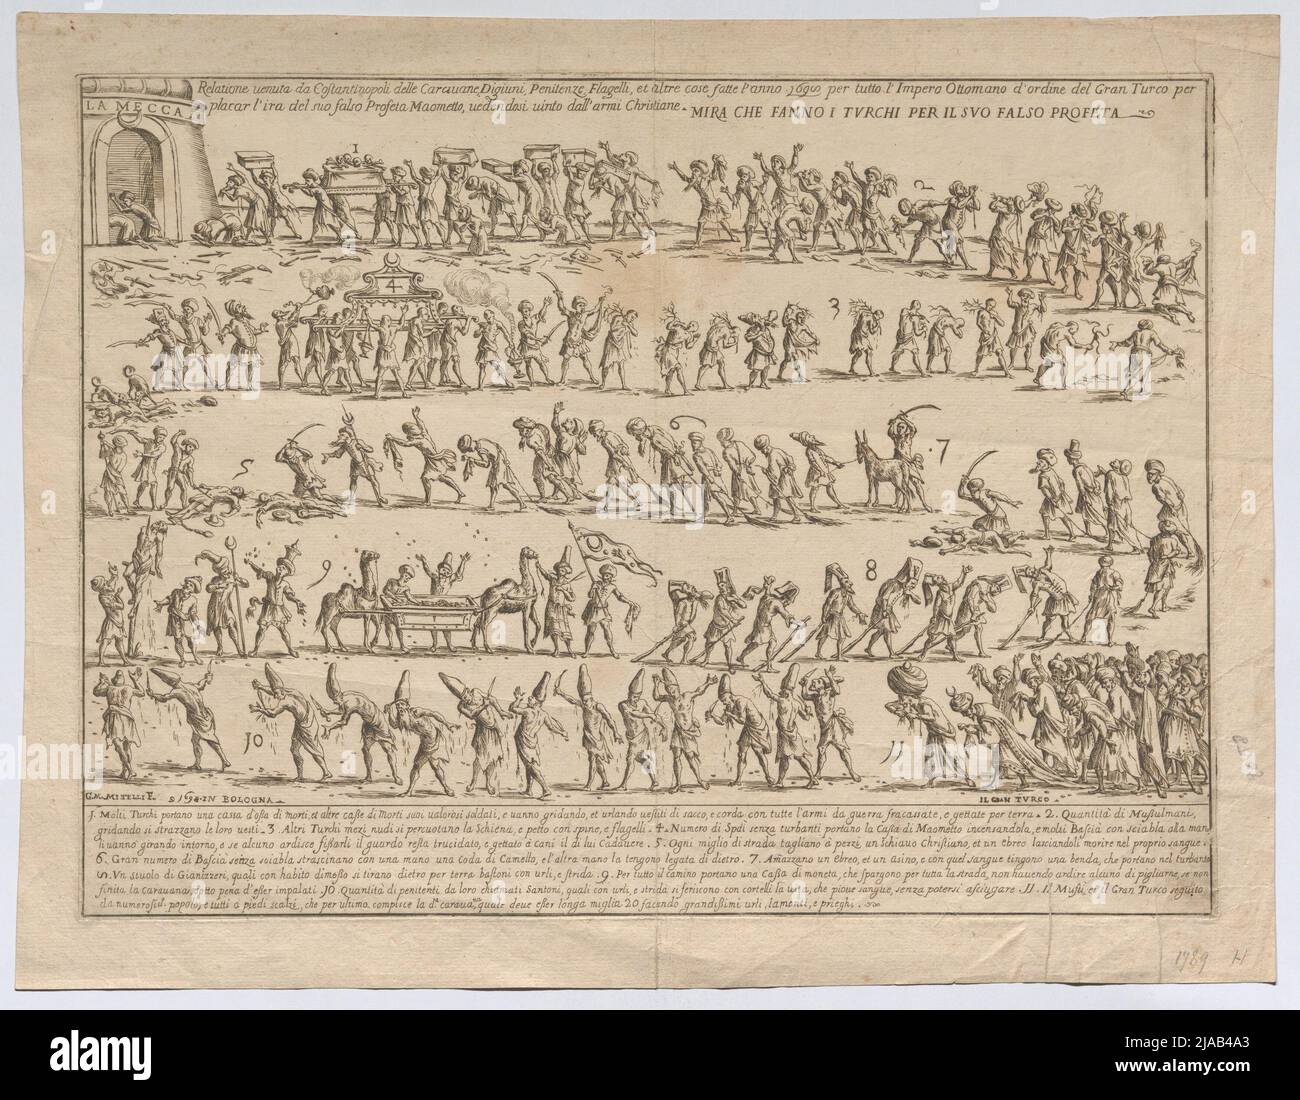 Relatione uenuta da Costantinopoli delle Carauane, Digiuni, Penitenze, Flagelli, et altre cose fatte l'anno 1690 per tutto l'Impero Ottomano d'ordine del Gran Turco per
placar l'ira del suo falso Profeta Maometto, uedendosi uinto dall'armi Christiane.
MIRA CHE FANNO I TVRCHI PER IL SVO FALSO PROFETA
LA MECCA
1
2
3
4
5
6
.7
8
9
10
11
G.M. MITELLI F.
1690 IN BOLOGNA
IL GRAN TVRCO
1. Molti Turchi portano una cassa d'ossa di morti, et altre casse di Morti suoi ualorosi soldati, e uanno gridando, et urlando uestiti di sacco, e corda con tutte l'armi da guerra fracassate, e gettate per terra. 2. Quantità di Mussulmani,
gridando si strazzano le loro uesti. 3. Altri Turchi mezi nudi si percuotano la Schiena, e petto con spine, e flagelli. 4. Numero di Spai senza turbanti portano la Cassa di Maometto incensandola, e molti Bascià con sciabla alla man
li uanno girando intorno, e se alcuno ardisce fissarli il guardo resta trucidato, e gettato à cani il di lui Cadauere. 5. Ogni miglio di strada tagliano à pezzi, un Schiauo Christiano, et un ebreo lasciandoli morire nel proprio sangue.
6. Gran numero di Bascià senza sciabla strascinano con una mano una Coda di Camello, e l'altra mano la tengono legata di dietro. 7. Amazzano un ebreo, et un Asino, e con quel sangue tingono una benda, che portano nel turbante
8. Vn stuolo di Gianizzeri, quali con habito dimesso si tirano dietro per terra bastoni con urli, e strida. 9. Per tutto il camino portano una Cassa di moneta, che spargono per tutta la strada, non hauendo ardire alcuno di pigliarne, se non
finita la Carauana, sotto pena d'esser impalati. 10. Quantità di penitenti da loro chiamati Santoni, quali con urli, e strida si feriscono con cortelli la testa, che pioue sangue, senza potersi asciugare. 11. Il Mufti, et il Gran Turco seguito
da numeroso popolo, e tutti à piedi scalzi, che per ultimo complisce la da. carauana, quale deue esser longa miglia 20 facendo grandissimi urli, lamenti, e prieghi.
1789 H
alamy
Image ID: 2JAB4A3
www.alamy.com